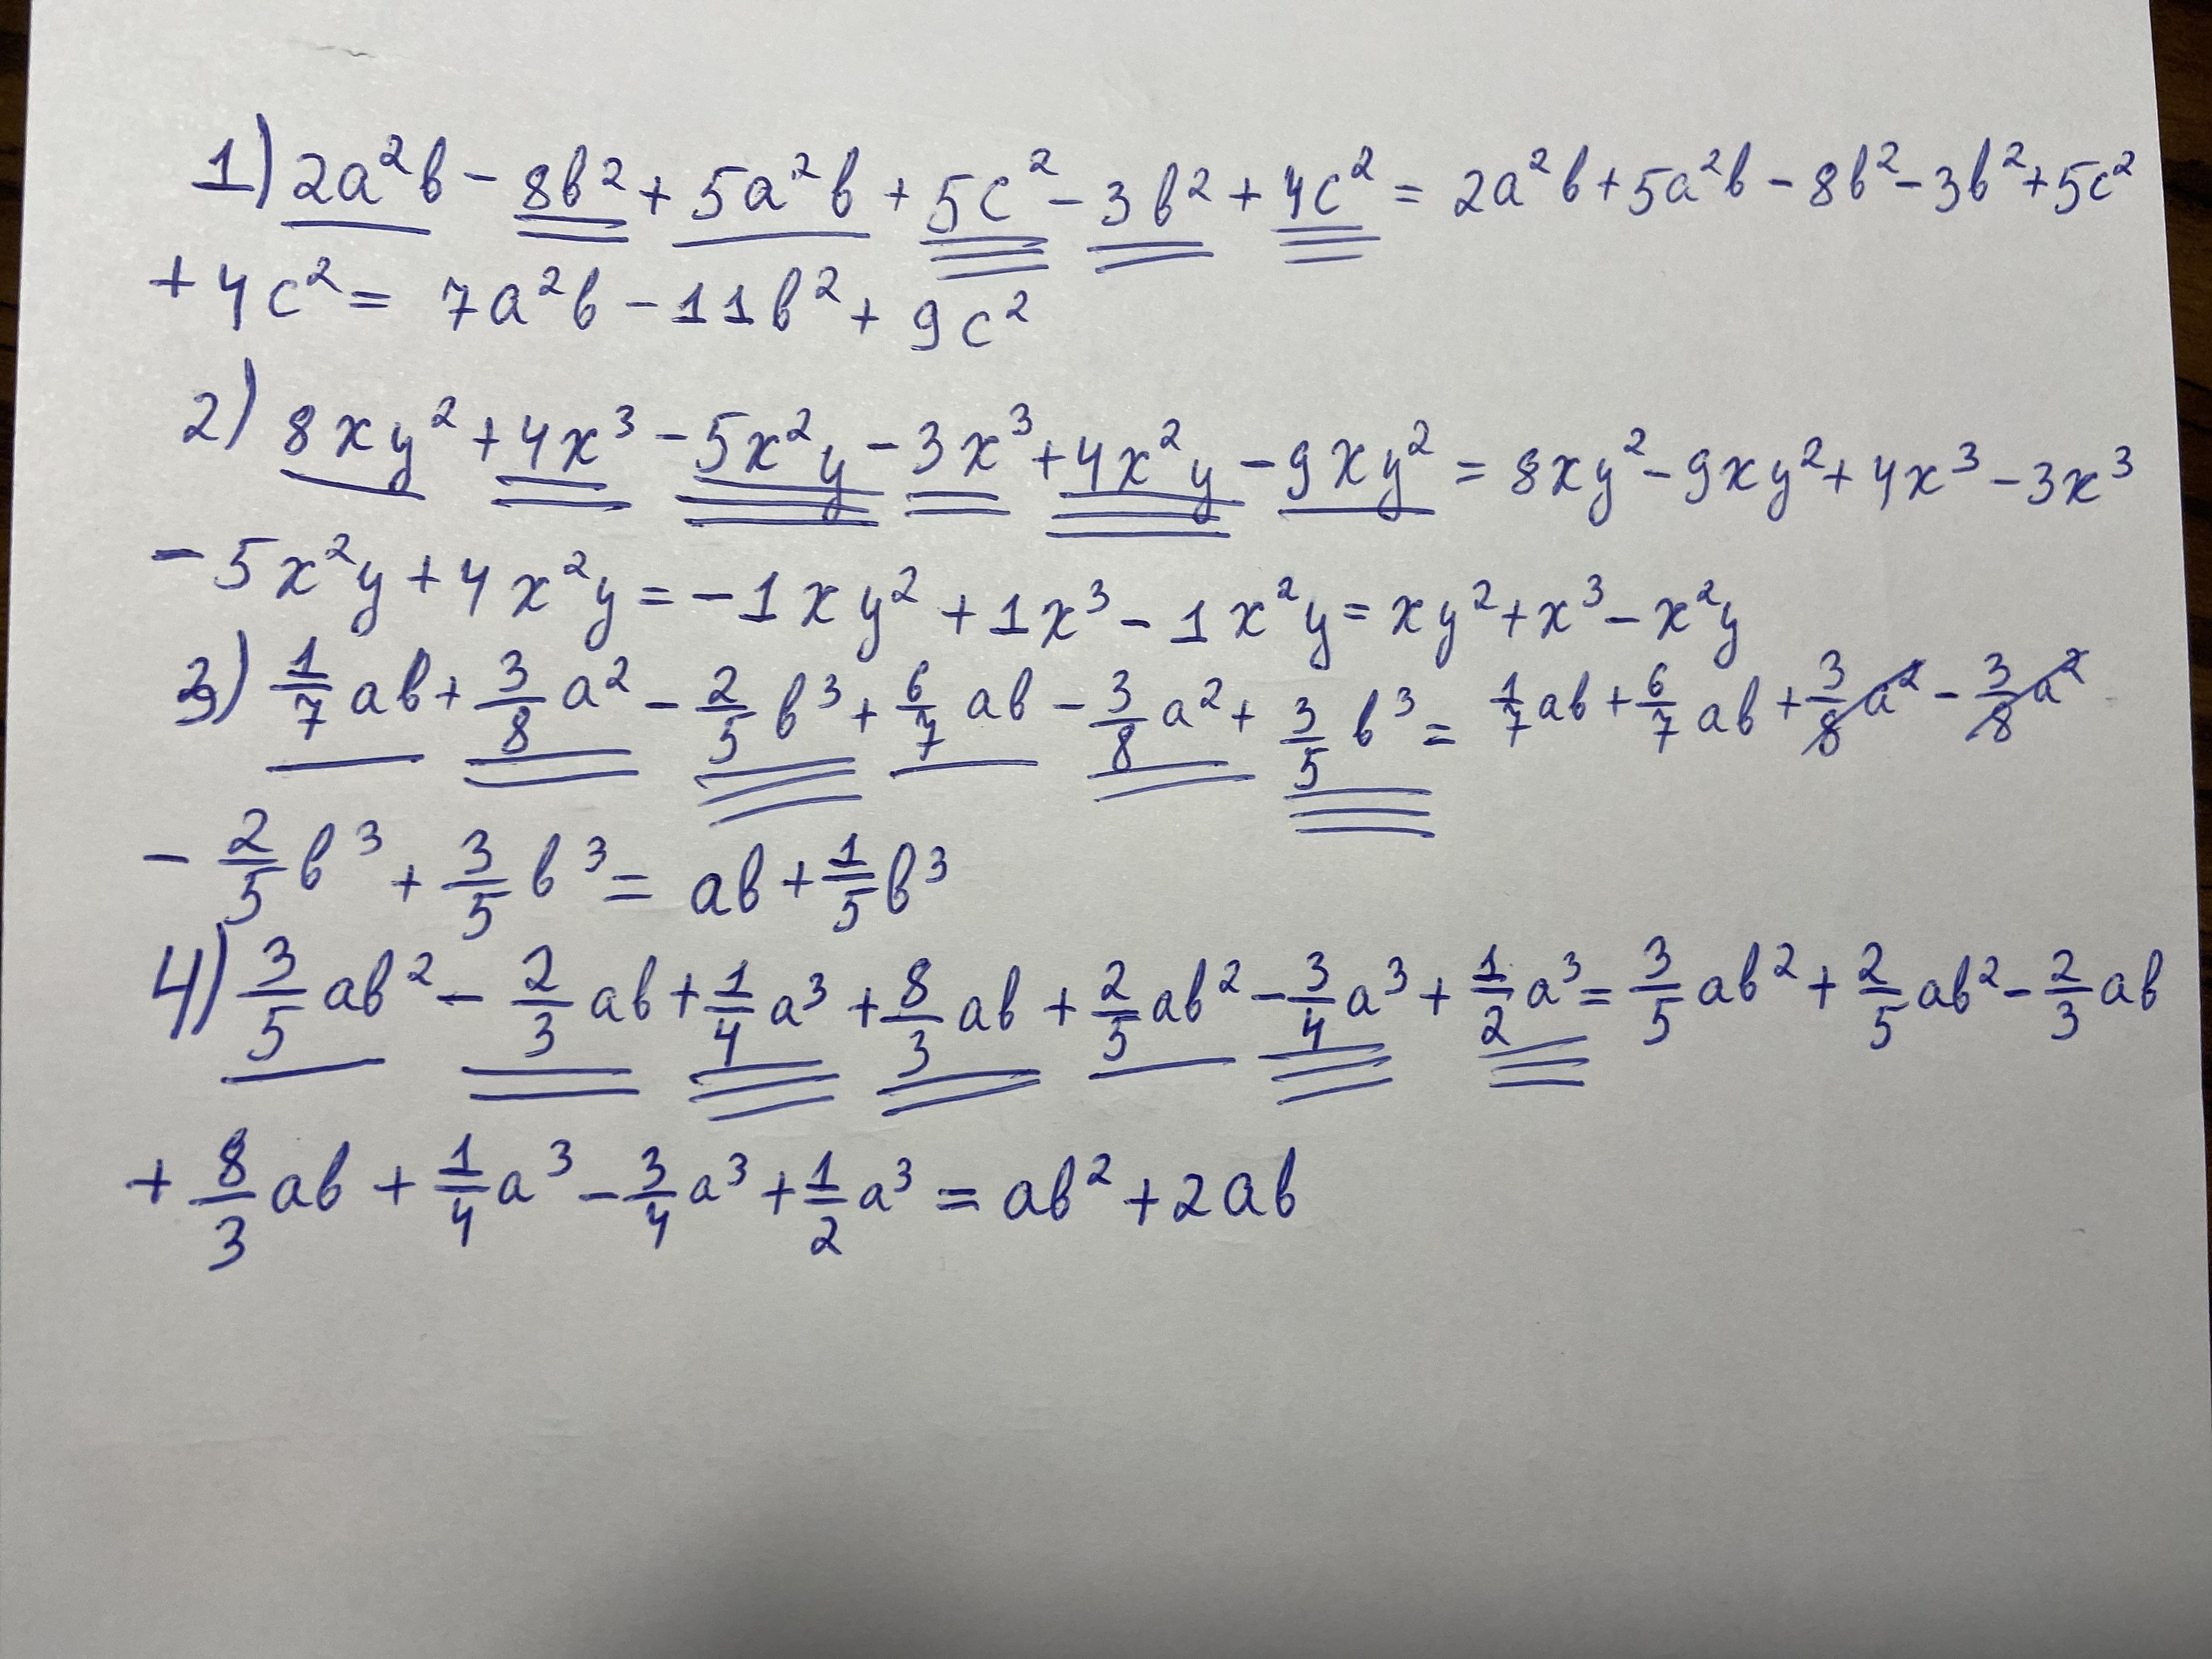 1) 2a²b - 8b² + 5a²b + 5c² - 3b² + 4c² = 2a²b + 5a²b - 8b² - 3b² + 5c²
+ 4c² = 7a²b - 11b² + 9c²
2) 8xy² + 4x³ - 5x²y - 3x³ + 4x²y - 9xy² = 8xy² - 9xy² + 4x³ - 3x³
- 5x²y + 4x²y = -1xy² + 1x³ - 1x²y = xy² + x³ - x²y
3) 1/7 ab + 3/8 a² - 2/5 b³ + 6/7 ab - 3/8 a² + 3/5 b³ = 1/7 ab + 6/7 ab + 3/8 a² - 3/8 a²
- 2/5 b³ + 3/5 b³ = ab + 1/5 b³
4) 3/5 ab² - 2/3 ab + 1/4 a³ + 8/3 ab + 2/5 ab² - 3/4 a³ + 1/2 a³ = 3/5 ab² + 2/5 ab² - 2/3 ab
+ 8/3 ab + 1/4 a³ - 3/4 a³ + 1/2 a³ = ab² + 2ab